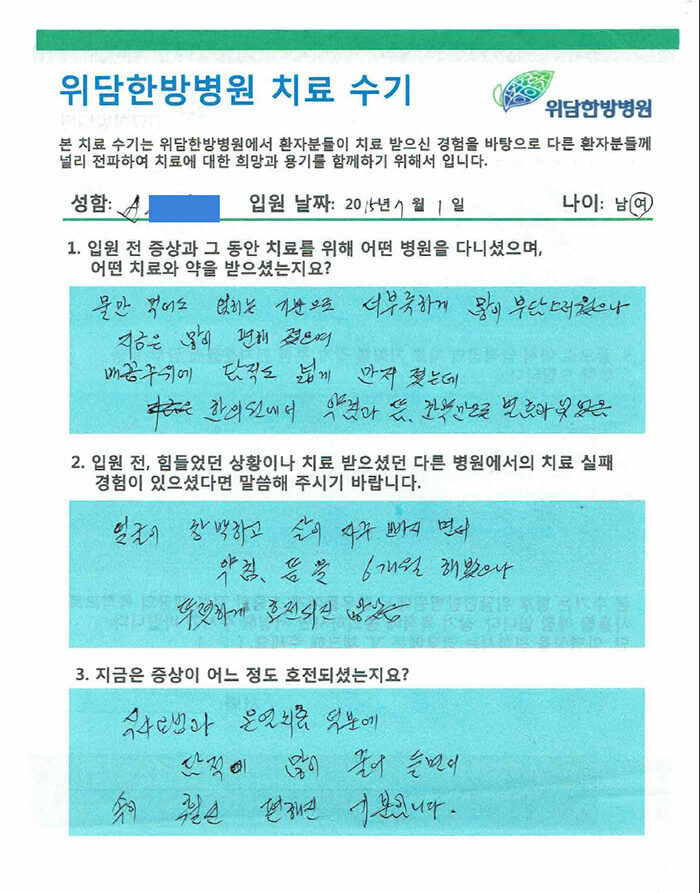 위담한방병원 치료 수기
위담한방병원
본 치료 수기는 위담한방병원에서 환자분들이 치료 받으신 경험을 바탕으로 다른 환자분들께
널리 전파하여 치료에 대한 희망과 용기를 함께하기 위해서 입니다.
성함: 입원 날짜: 2015년 7월 1일 나이: 남 여
1. 입원 전 증상과 그 동안 치료를 위해 어떤 병원을 다니셨으며,
어떤 치료와 약을 받으셨는지요?
물만 먹어도 기분으로 더부룩하게 많이 부담스러웠으나
지금은 많이 편해 졌으며
배꼽주위에 단적도 넓게 만져 졌는데
한의원에서 약침과 뜸,
2. 입원 전, 힘들었던 상황이나 치료 받으셨던 다른 병원에서의 치료 실패
경험이 있으셨다면 말씀해 주시기 바랍니다.
얼굴이 창백하고 살이 자꾸 빠지면서
약침, 뜸을 6개월 해봤으나
뚜렷하게 호전되진 않았음
3. 지금은 증상이 어느 정도 호전되셨는지요?
식사요법과 온열치료 덕분에
단적이 많이 줄어 들면서
속이 훨씬 편해진 기분입니다.